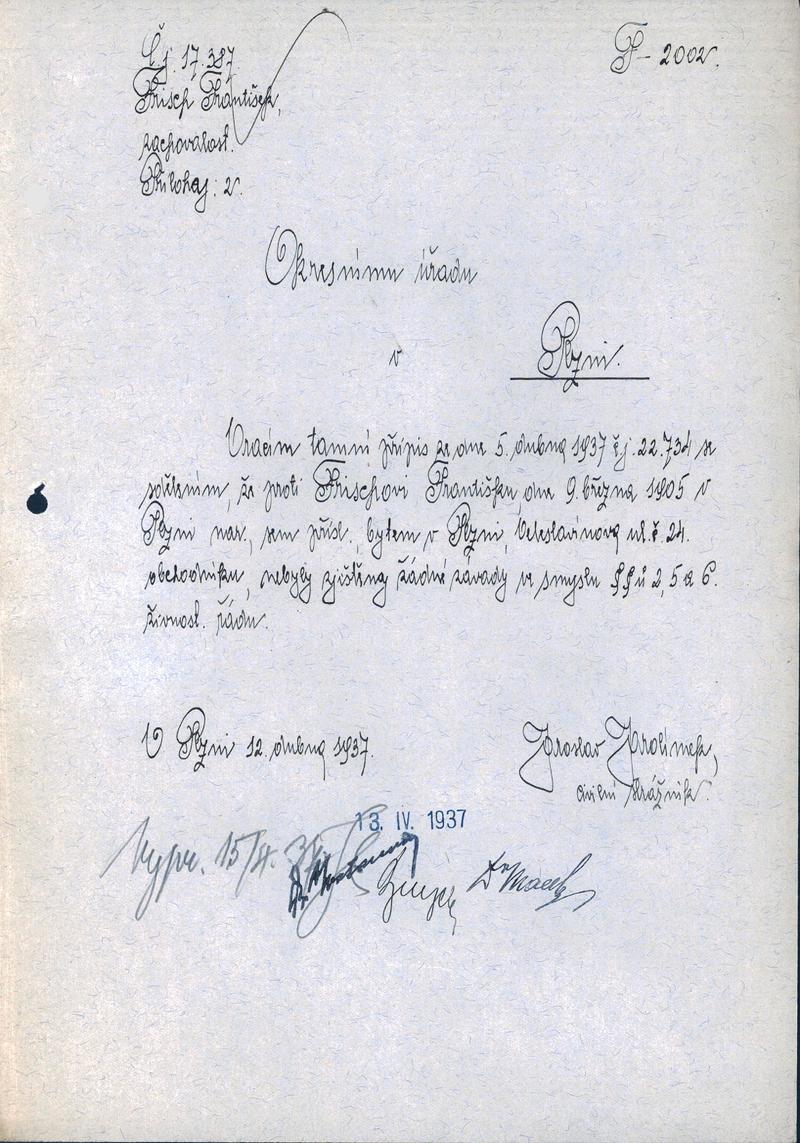 Čj. 17.387.
F - 2002.
Frisch František,
zachovalost.
Přílohy: 2.
Okresnímu úřadu
v Plzni.
Vracím tamní přípis ze dne 5. dubna 1937 čj. 22.734 se
sdělením, že proti Frischovi Františku, dne 9. března 1905 v
Plzni nar., sem přísl., bytem v Plzni, Veleslavínova ul. č. 24.
obchodníku, nebyly zjištěny žádné závady ve smyslu §§ů 2, 5 a 6.
živnost. řádu.
V Plzni 12. dubna 1937.
Jaroslav Jarolímek,
civilní strážník.
13. IV. 1937
Vypr. 15/4. 37
Dr Macek